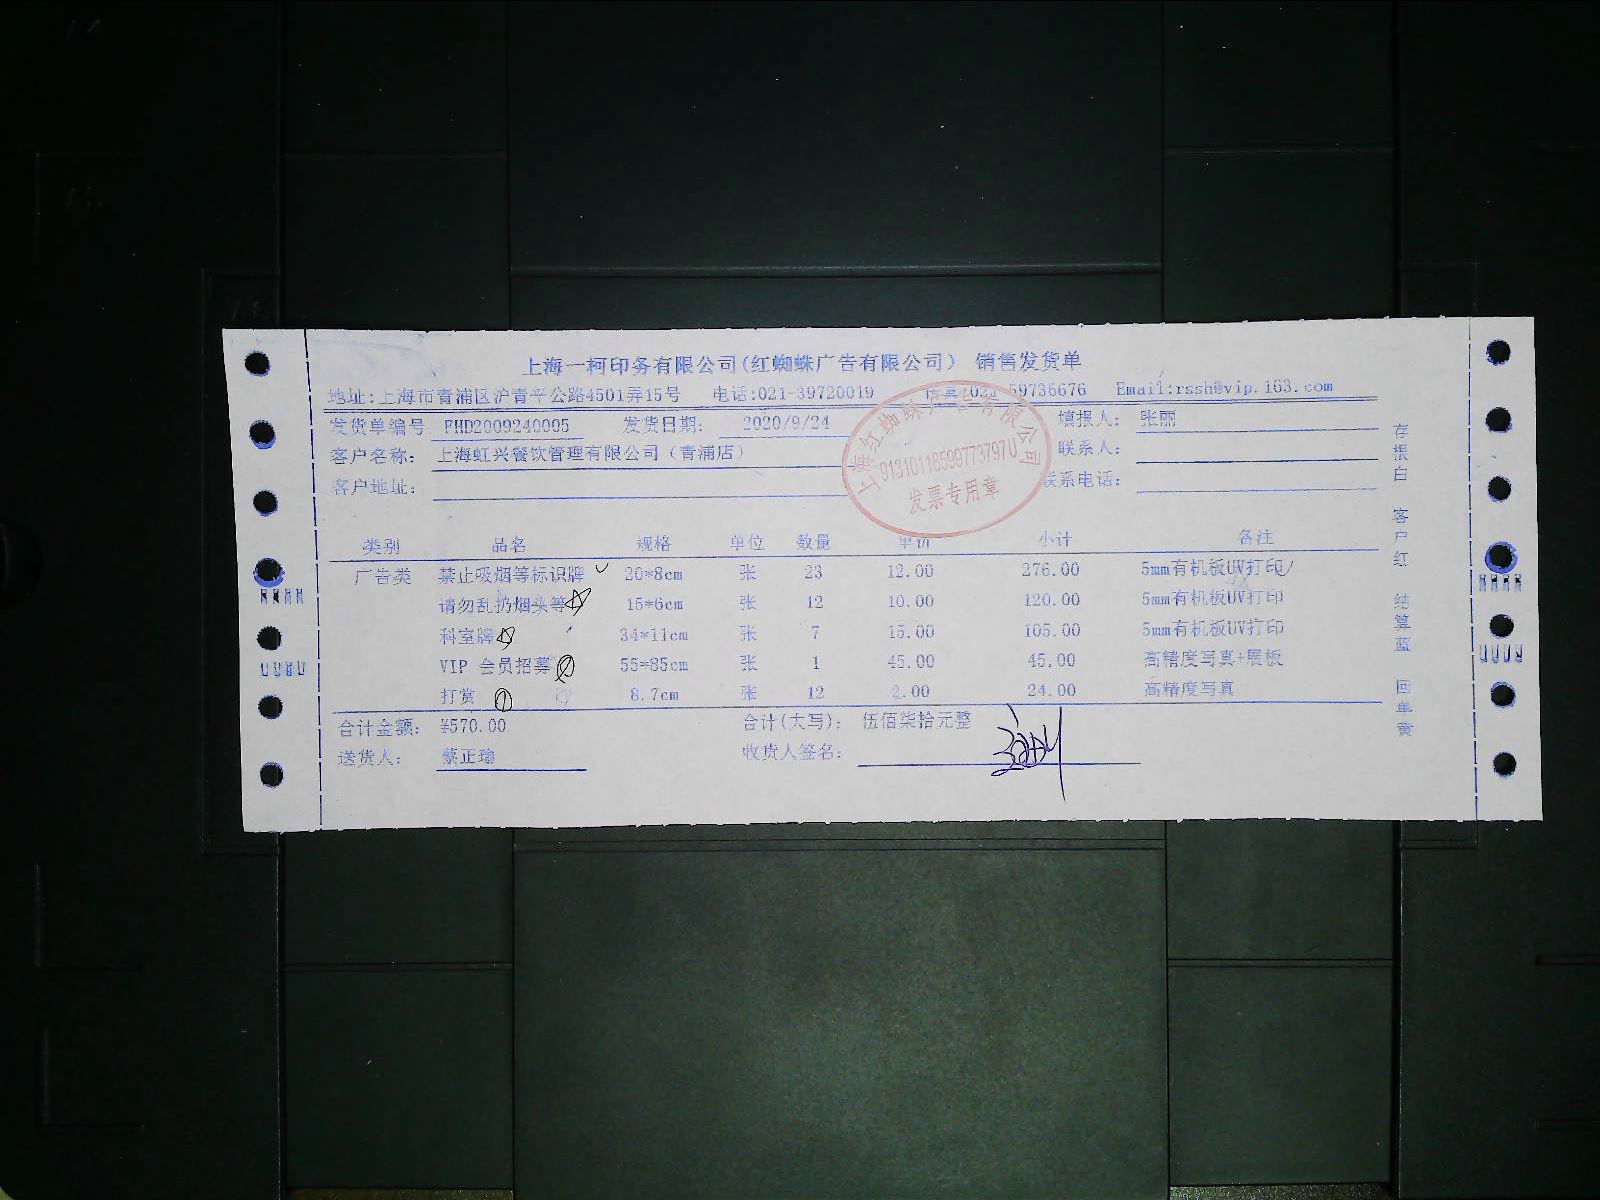 上海一柯印务有限公司(红蜘蛛广告有限公司) 销售发货单
地址:上海市青浦区沪青平公路4501弄15号 电话:021-39720019 传真:021-59735676 Email:rssh@vip.163.com
发货单编号 FHD2009240005 发货日期: 2020/9/24 填报人: 张丽
客户名称: 上海虹兴餐饮管理有限公司(青浦店) 联系人:
客户地址: 联系电话:
上海红蜘蛛广告有限公司
91310118599773797U
发票专用章
类别 品名 规格 单位 数量 单价 小计 备注
广告类 禁止吸烟等标识牌 20*8cm 张 23 12.00 276.00 5mm有机板UV打印
请勿乱扔烟头等 15*6cm 张 12 10.00 120.00 5mm有机板UV打印
科室牌 34*11cm 张 7 15.00 105.00 5mm有机板UV打印
VIP 会员招募 55*85cm 张 1 45.00 45.00 高精度写真+展板
打赏 8.7cm 张 12 2.00 24.00 高精度写真
合计金额: ¥570.00 合计(大写): 伍佰柒拾元整
送货人: 蔡正瑜 收货人签名:
存根白 客户红 结算蓝 回单黄